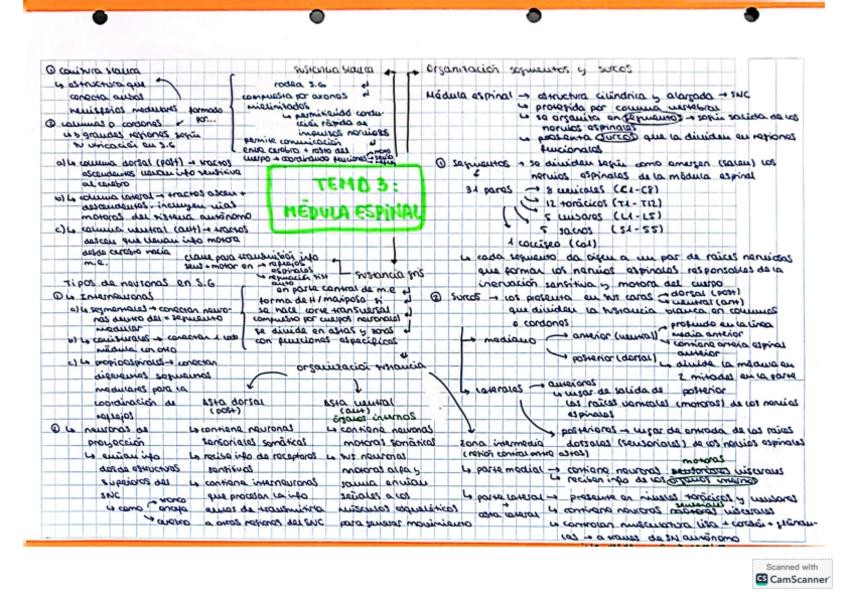 ① Comisura blanca
↳ estructura que
conecta ambos
hemisferios medulares
② columnas o cordones
↳ 3 grandes regiones según
su ubicación en S.G
a) ↳ columna dorsal (post) → tractos
ascendentes llevan info sensitiva
al cerebro
b) ↳ columna lateral → tractos ascen +
descendentes. incluyen vías
motoras del sistema autónomo
c) ↳ columna ventral (ant) → tractos
descen que llevan info motora
desde cerebro hacia
m.e.
formado
por...
sustancia blanca
rodea S.G
compuesta por axones
mielinizados
↳ permitiendo condu-
cción rápida de
impulsos nerviosos
permite comunicación
entre cerebro + resto del
cuerpo → coordinando funciones
TEMA 3:
MÉDULA ESPINAL
Organización segmentos y surcos
Médula espinal → estructura cilíndrica y alargada → SNC
↳ protegida por columna vertebral
↳ se organiza en segmentos → según salida de los
nervios espinales
↳ presenta surcos que la dividen en regiones
funcionales
① Segmentos → se dividen según como emergen (salen) los
nervios espinales de la médula espinal
31 pares → 8 cervicales (C1-C8)
12 torácicos (T1-T12)
5 lumbares (L1-L5)
5 sacros (S1-S5)
1 coccígeo (Co1)
↳ cada segmento da origen a un par de raíces nerviosas
que forman los nervios espinales responsables de la
inervación sensitiva y motora del cuerpo
② Surcos → los presenta en sus caras → dorsal (post)
→ ventral (ant)
que dividen la sustancia blanca en columnas
o cordones
→ mediano → anterior (ventral) → profundo en la línea
media anterior
→ contiene arteria espinal
anterior
→ posterior (dorsal) → divide la médula en
2 mitades en la parte
posterior
↳ laterales → anteriores
↳ lugar de salida de
las raíces ventrales (motoras) de los nervios
espinales
posteriores → lugar de entrada de las raíces
dorsales (sensoriales) de los nervios espinales
clave para transmisión info
sens + motor en → reflejos
espinales
→ regulación sist
auto
sustancia gris
en parte central de m.e
forma de H / mariposa si
se hace corte transversal
compuesto por cuerpos neuronales
se divide en astas y zonas
con funciones específicas
organización sustancia
Tipos de neuronas en S.G
① ↳ Interneuronas
a) ↳ segmentales → conectan neuro-
nas dentro del = segmento
medular
b) ↳ comisurales → conectan 1 lado
médula con otro
c) ↳ propioespinales → conectan
diferentes segmentos
medulares para la
coordinación de
reflejos
② ↳ neuronas de
proyección
↳ envían info
desde estructuras
superiores del
SNC
↳ como → tronco
encef
→ cerebro
Asta dorsal
(post)
↳ contiene neuronas
sensoriales somáticas
↳ recibe info de receptores
sensitivos
↳ contiene interneuronas
que procesan la info
antes de transmitirla
a otras regiones del SNC
Asta ventral
(ant)
órganos internos
↳ contiene neuronas
motoras somáticas
↳ sus neuronas
motoras alfa y
gamma envían
señales a los
músculos esqueléticos
para generar movimiento
zona intermedia
(región central entre astas)
↳ parte medial → contiene neuronas motoras viscerales
↳ reciben info de los órganos internos
↳ parte lateral → presente en niveles torácicos y lumbares
asta lateral
↳ contiene neuronas viscerales
↳ controlan musculatura lisa + corazón + glándu-
las → a través de SN autónomo
Scanned with
CS CamScanner